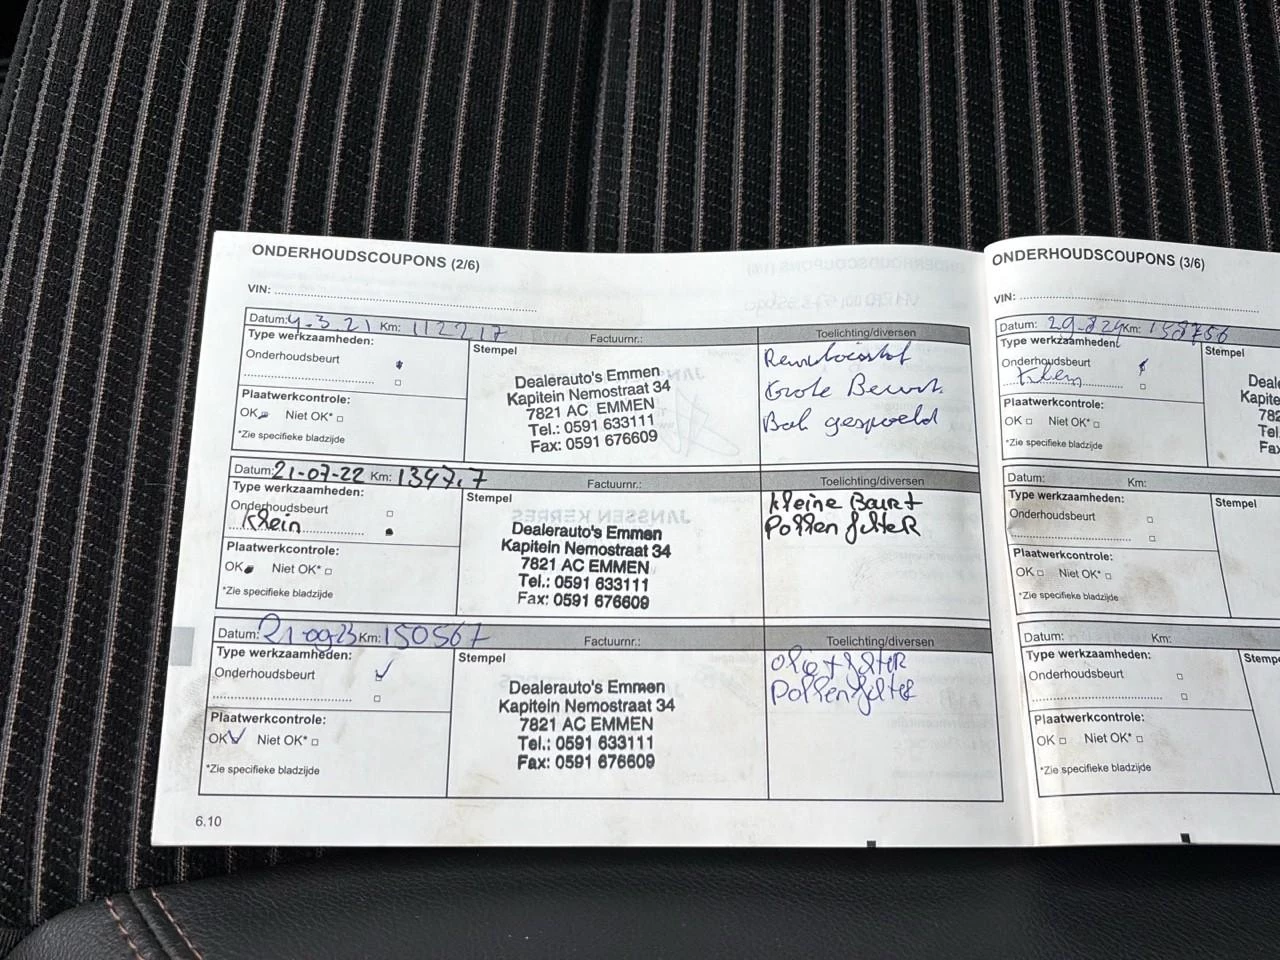 ONDERHOUDSCOUPONS (2/6)
VIN:
Datum: 4-3-21 Km: 112217
Factuurnr.:
Toelichting/diversen
Type werkzaamheden:
Onderhoudsbeurt
Stempel
Dealerauto's Emmen
Kapitein Nemostraat 34
7821 AC EMMEN
Tel.: 0591 633111
Fax: 0591 676609
Remvloeistof
Grote Beurt
Bak gespoeld
Plaatwerkcontrole:
OK Niet OK*
*Zie specifieke bladzijde
Datum: 21-07-22 Km:
Factuurnr.:
Toelichting/diversen
Type werkzaamheden:
Onderhoudsbeurt
Klein
Stempel
Dealerauto's Emmen
Kapitein Nemostraat 34
7821 AC EMMEN
Tel.: 0591 633111
Fax: 0591 676609
Kleine Beurt
Pollenfilter
Plaatwerkcontrole:
OK Niet OK*
*Zie specifieke bladzijde
Datum: 21-09-23 Km: 150567
Factuurnr.:
Toelichting/diversen
Type werkzaamheden:
Onderhoudsbeurt
Stempel
Dealerauto's Emmen
Kapitein Nemostraat 34
7821 AC EMMEN
Tel.: 0591 633111
Fax: 0591 676609
Olie + filter
Pollenfilter
Plaatwerkcontrole:
OK Niet OK*
*Zie specifieke bladzijde
6.10
ONDERHOUDSCOUPONS (3/6)
VIN:
Datum: 29-8-24 Km: 158756
Type werkzaamheden:
Onderhoudsbeurt
Klein
Stempel
Deale
Kapite
782
Tel.
Fa
Plaatwerkcontrole:
OK Niet OK*
*Zie specifieke bladzijde
Datum: Km:
Type werkzaamheden:
Onderhoudsbeurt
Stempel
Plaatwerkcontrole:
OK Niet OK*
*Zie specifieke bladzijde
Datum: Km:
Type werkzaamheden:
Onderhoudsbeurt
Stemp
Plaatwerkcontrole:
OK Niet OK*
*Zie specifieke bladzijde